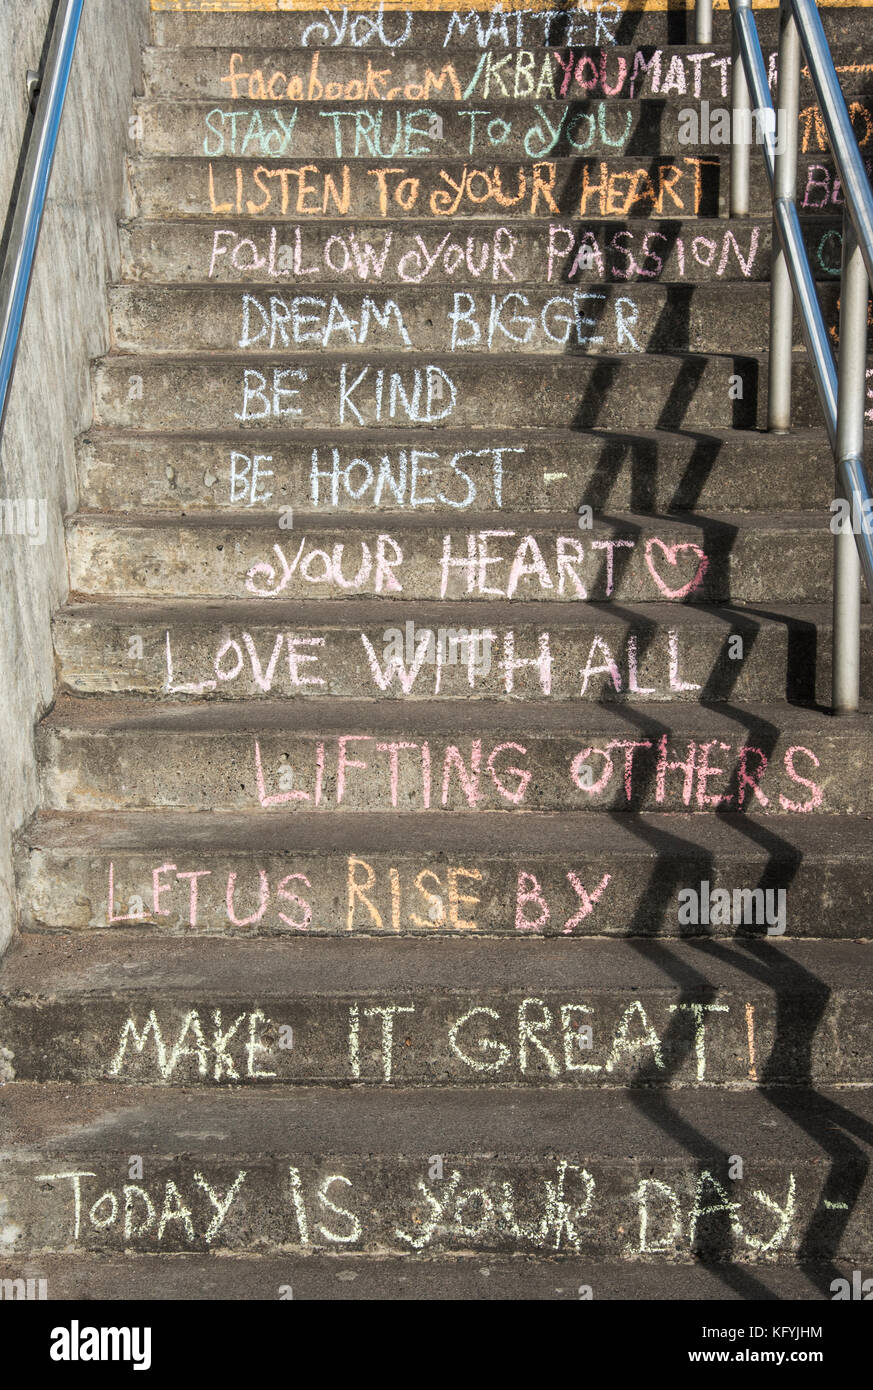 YOU MATTER
facebook.com/KBAYOUMATTER
STAY TRUE TO YOU
LISTEN TO YOUR HEART
FOLLOW YOUR PASSION
DREAM BIGGER
BE KIND
BE HONEST -
YOUR HEART
LOVE WITH ALL
LIFTING OTHERS
LET US RISE BY
MAKE IT GREAT!
TODAY IS YOUR DAY -
alamy
Image ID: KFYJHM
www.alamy.com